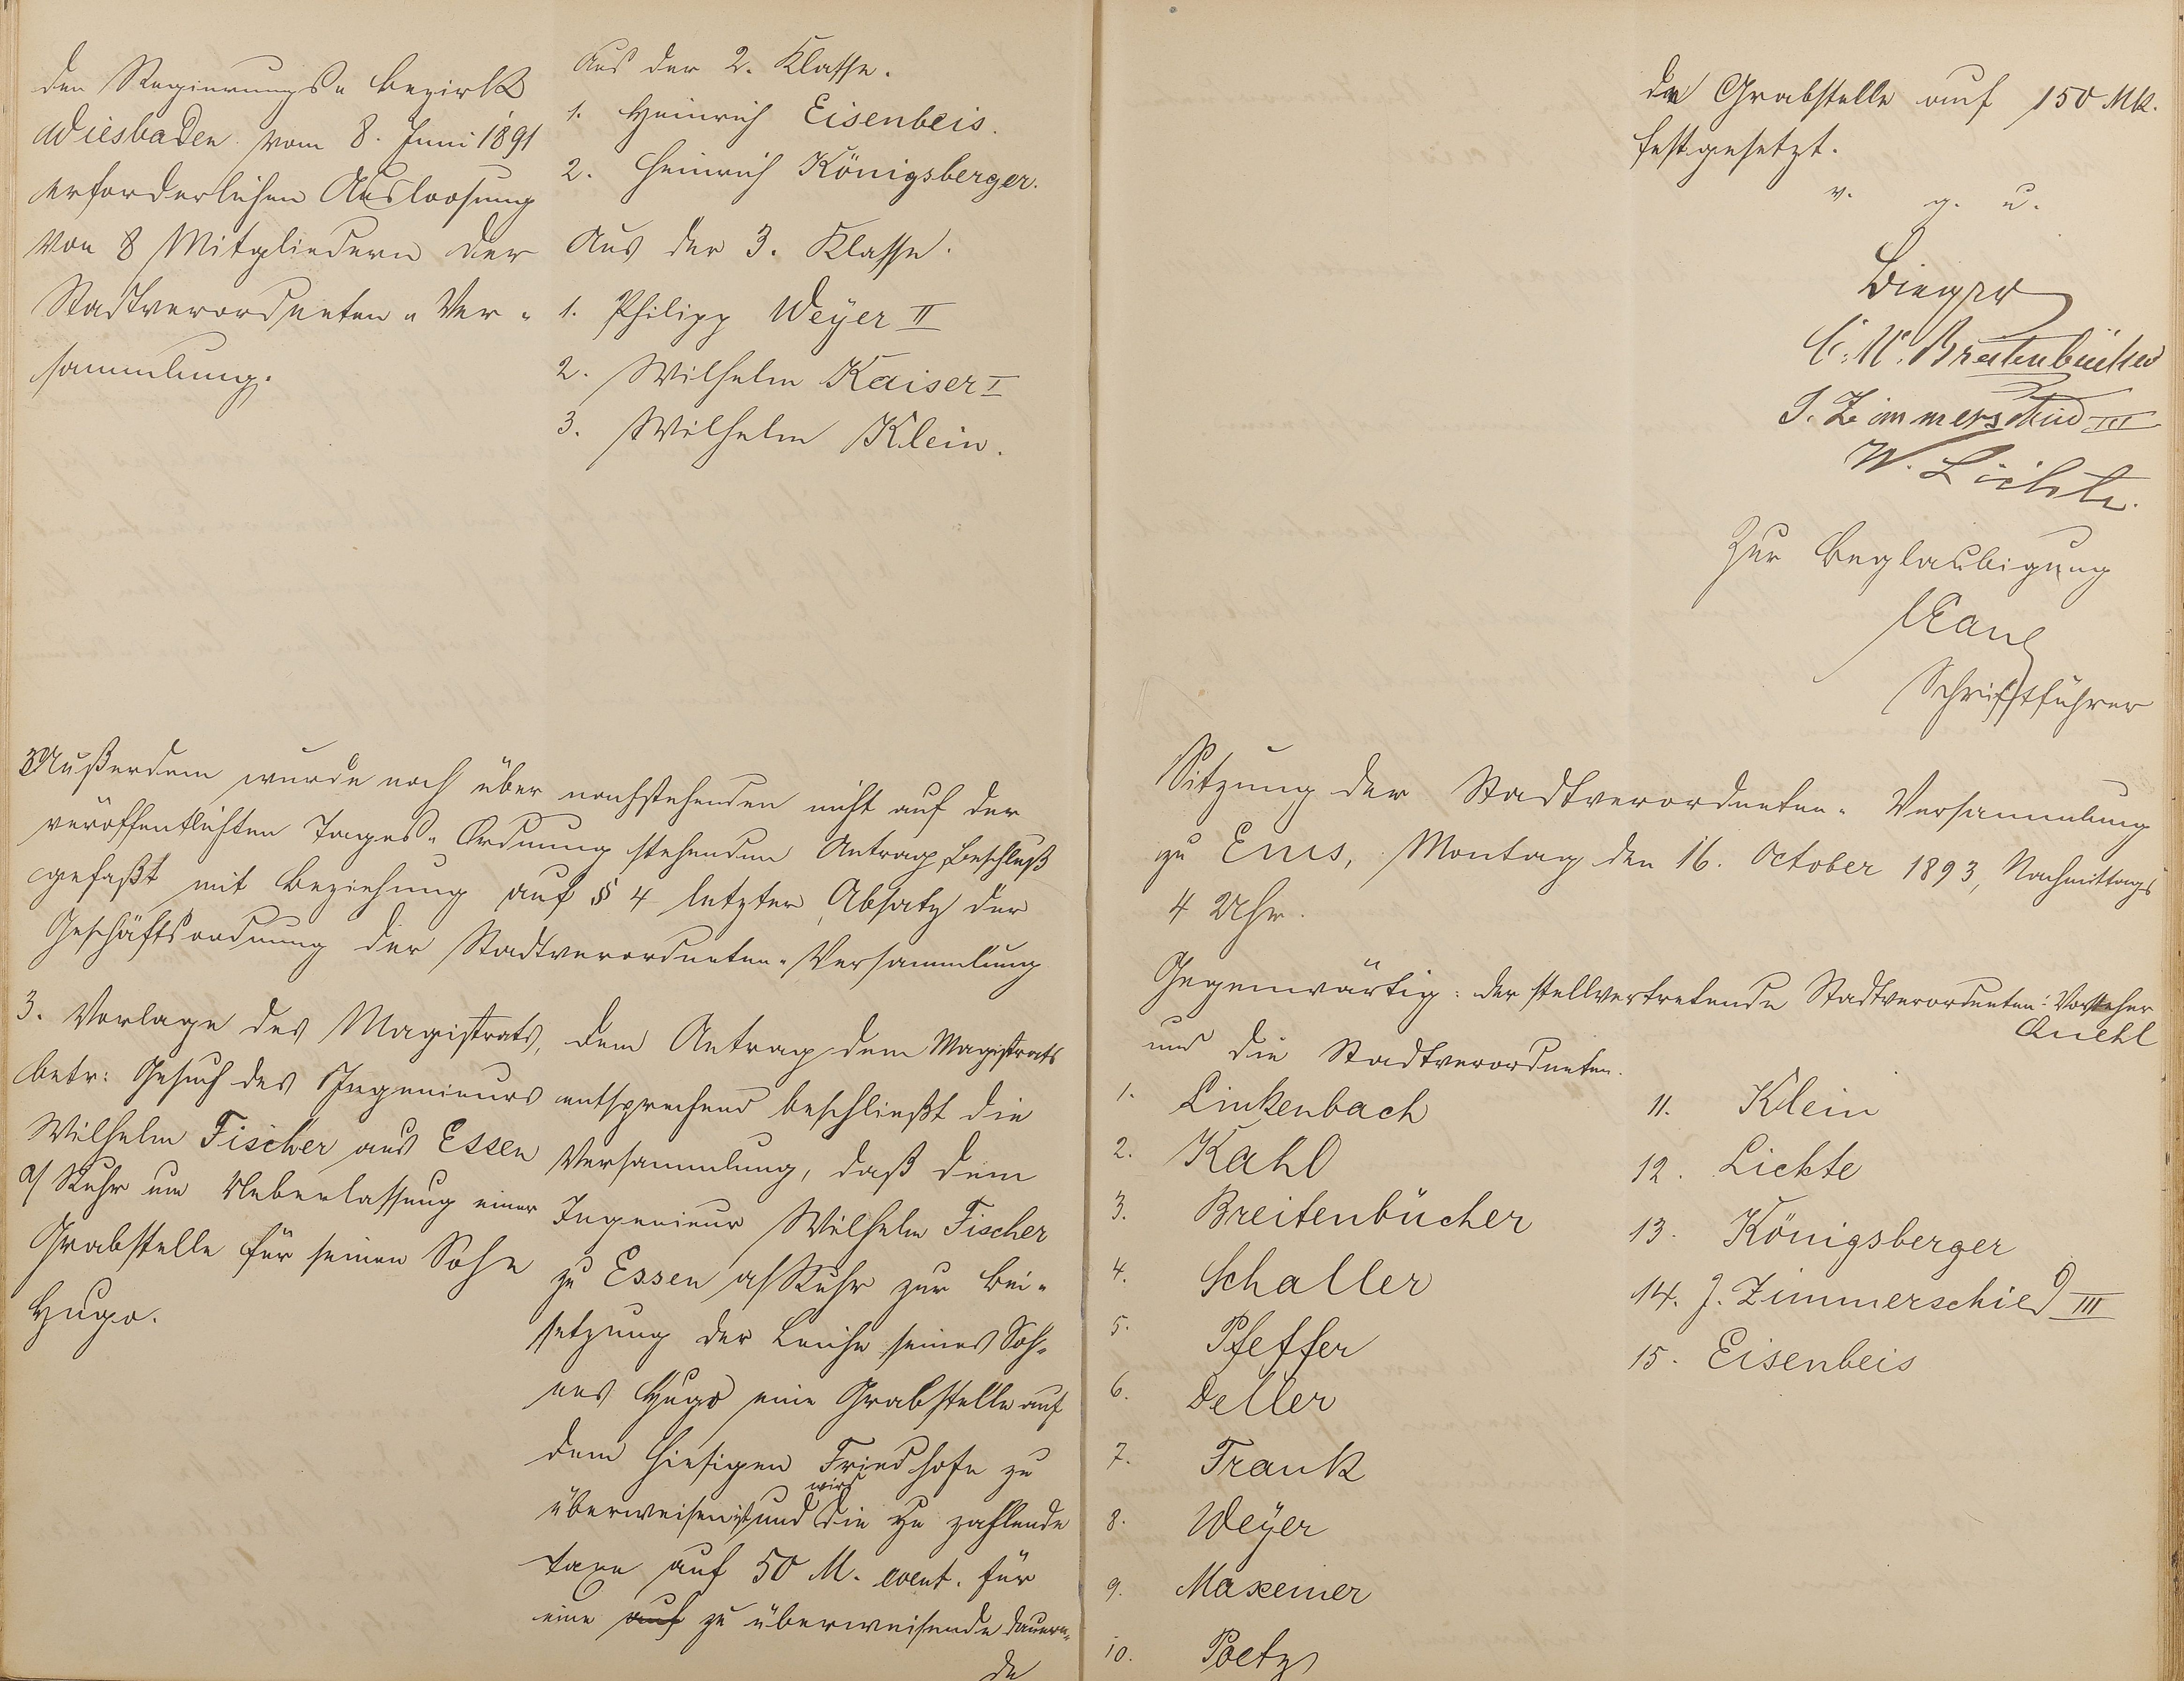 den Regierungs- bezirk
Wiesbaden vom 8. Juni 1891
erforderlichen Ausloosung
von 8 Mitgliedern der
Stadtverordneten- Ver-
sammlung.
Aus der 2. Klasse.
1. Heinrich Eisenbeis.
2. Heinrich Königsberger.
Aus der 3. Klasse.
1. Philipp Weyer II
2. Wilhelm Kaiser I
3. Wilhelm Klein.
Außerdem wurde noch über nachstehenden nicht auf der
veröffentlichten Tages- Ordnung stehenden Antrag Beschluß
gefaßt mit Beziehung auf § 4 letzter Absatz der
Geschäftsordnung der Stadtverordneten-Versammlung
3. Vorlage des Magistrats,
betr: Gesuch des Ingenieurs
Wilhelm Fischer aus Essen
a/ Ruhr um Ueberlassung einer
Grabstelle für seinen Sohn
Hugo.
dem Antrag dem Magistrats
entsprechend beschließt die
Versammlung, daß dem
Ingenieur Wilhelm Fischer
zu Essen a/Ruhr zur Bei-
setzung der Leiche seines Soh-
nes Hugo eine Grabstelle auf
dem hiesigen Friedhofe zu
wird
überweisen ist und die zu zahlende
Taxe auf 50 M. event. für
eine auf zu überweisende dauern-
de
de Grabstelle auf 150 Mk.
festgesetzt.
v. g. u.
C. W. Breitenbücher
J. Zimmerschied III
W. Lichte.
Zur Beglaubigung
Schriftführer
Sitzung der Stadtverordneten- Versammlung
zu Ems, Montag den 16. October 1893, Nachmittags
4 Uhr.
Gegenwärtig: der stellvertretende Stadtverordneten-Vorsteher
Quehl
und die Stadtverordneten.
1. Linkenbach
2. Kahl
3. Breitenbücher
4. Schaller
5. Pfeffer
6. Deller
7. Frank
8. Weyer
9. Maxeiner
10. Poetz
11. Klein
12. Lichte
13. Königsberger
14. J. Zimmerschied III
15. Eisenbeis